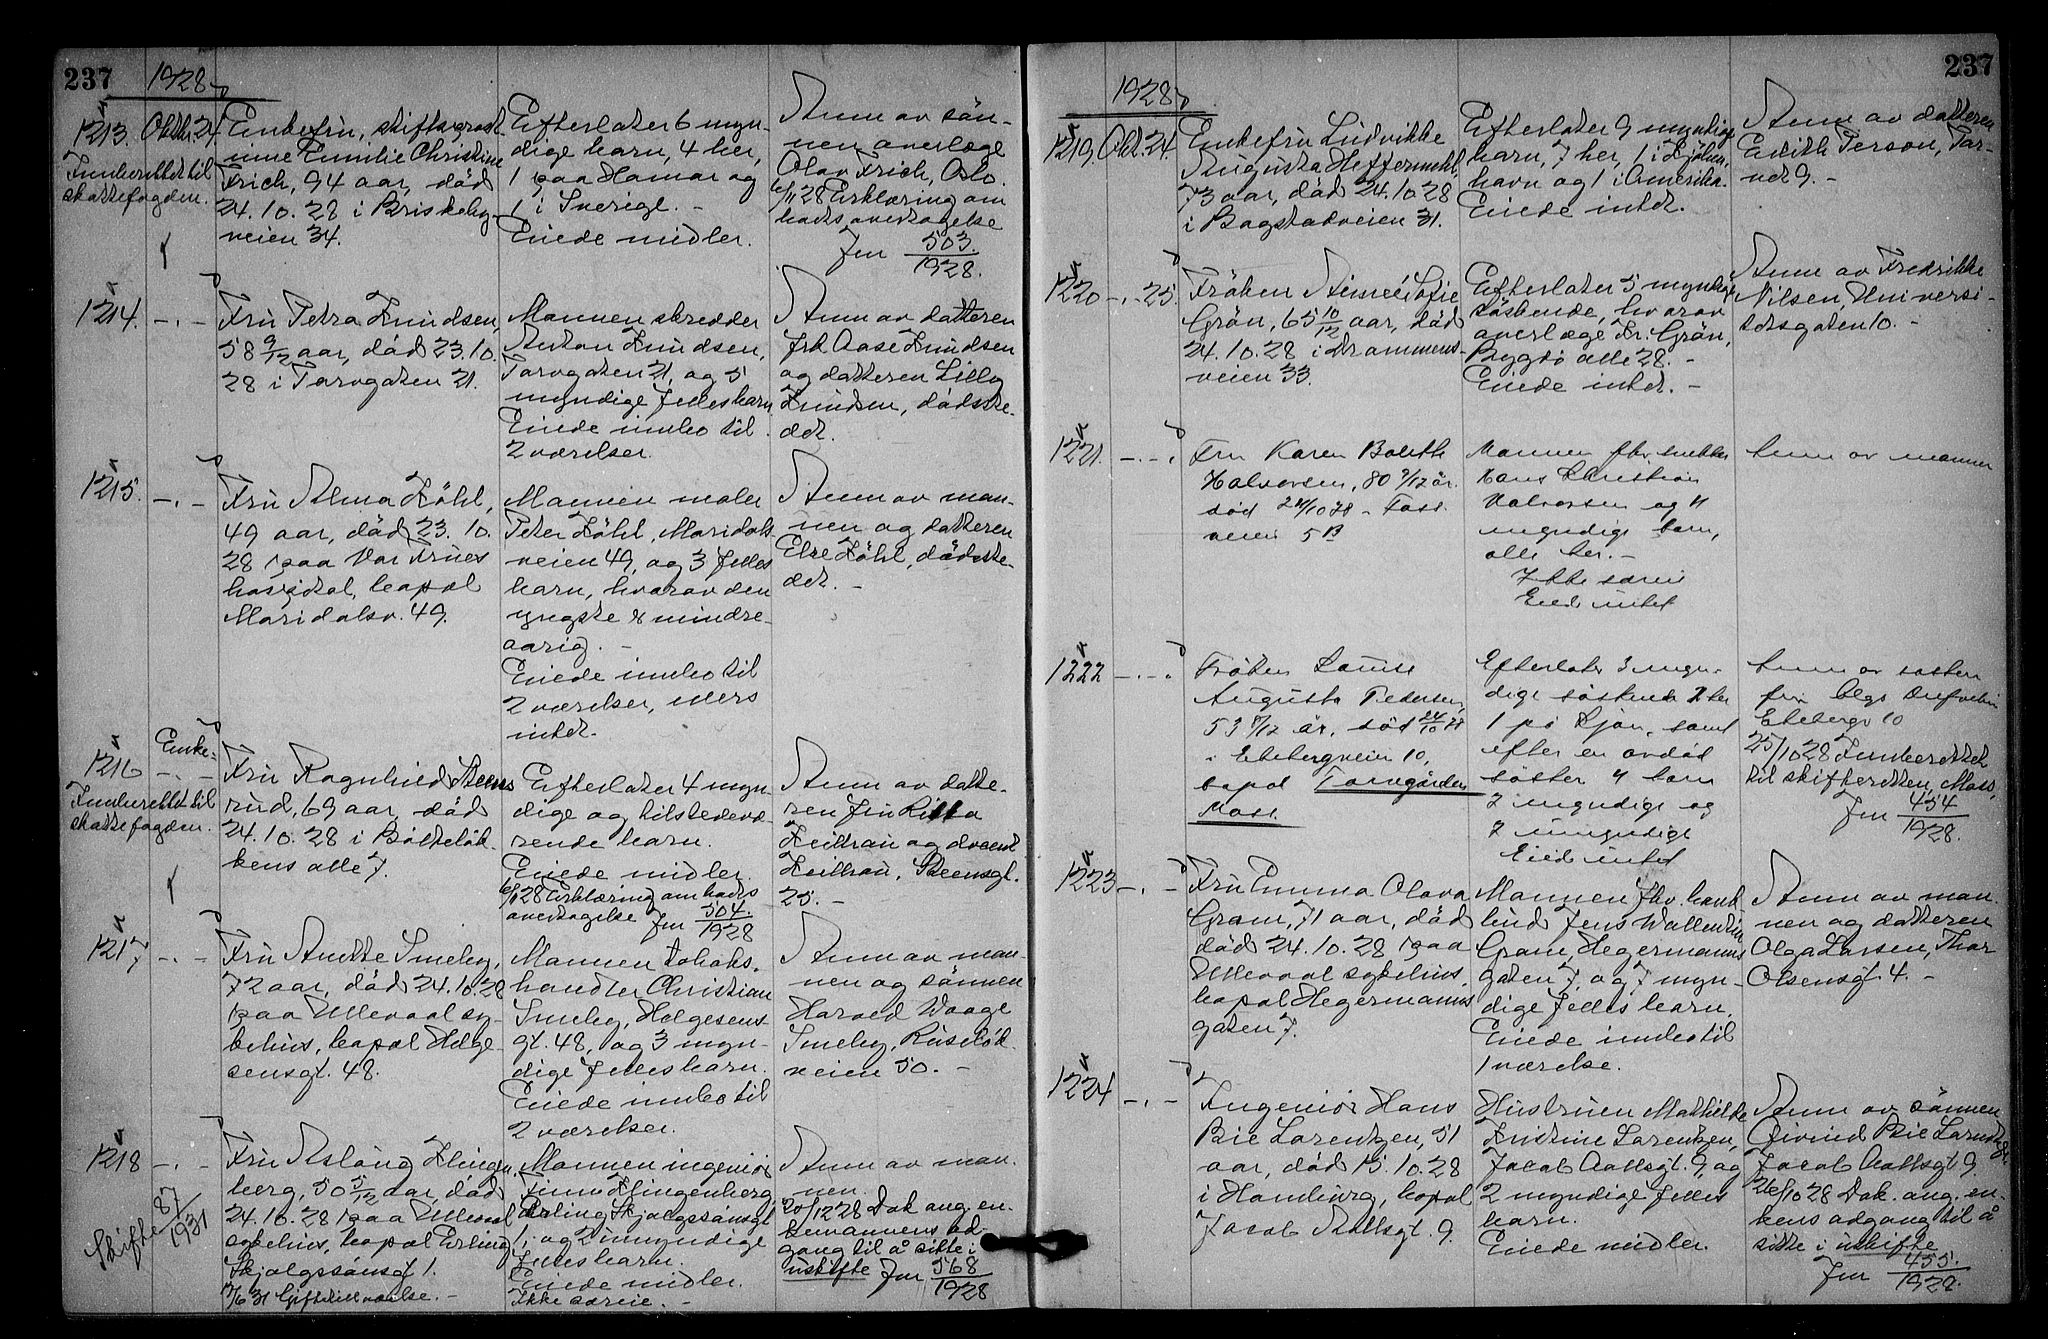 237
1928
1213. Oktbr. 24.
Indberettet til
skattefogden.
Enkefru, stiftsprost-
inne Emilie Christine
Frich, 94 aar, död
24.10.28 i Briskeby-
veien 34.
Efterlater 6 myn-
dige barn, 4 her,
1 paa Hamar og
1 i Sverige. -
Eiede midler.
Anm av sön-
nen overlæge
Olav Frich, Oslo.
6/11 28 Erklæring om
bods overtagelse
Jnr 503/1928.
1214. -.-
Fru Petra Knudsen,
58 9/12 aar, död 23.10.
28 i Torvgaten 21.
Mannen skredder
Anton Knudsen,
Torvgaten 21, og 5
myndige felles barn
Eiede innbo til
2 værelser.
Anm av datteren
frk Aase Knudsen
og datteren Lilly
Knudsen, dödste-
det.
1215. -.-
Fru Alma Köhl,
49 aar, död 23.10.
28 paa Vor Frues
hospital, bopæl
Maridalsv. 49.
Mannen maler
Peter Köhl, Maridals-
veien 49, og 3 felles
barn, hvorav den
yngste er mindre-
aarig. -
Eiede innbo til
2 værelser, ellers
intet.
Anm av man-
nen og datteren
Else Köhl, dödste-
det. -
1216 Enke-
-.-
Indberettet til
skattefogden.
Fru Ragnhild Steens
rud, 69 aar, död
24.10.28 i Bolteløk-
kens alle 7.
Efterlater 4 myn
dige og tilstedevæ
rende barn.
Eiede midler.
6/11 28 Erklæring om bods
overtagelse Jnr 504./1928
Anm av datte-
ren fru
Keilhau og docent
Keilhau, Steensgt.
25. -
1217 -.-
Fru Anette Smeby,
72 aar, död 24.10.28
paa Ullevaal sy-
kehus, bopæl Helge-
sensgt. 48.
Mannen tobaks-
handler Christian
Smeby, Helgesens-
gt. 48, og 3 myn-
dige felles barn.
Eiede innbo til
2 værelser.
Anm av man-
nen og sönnen
Harald Waage
Smeby, Ruselök-
veien 50. -
1218 -.-
Skifte 87/1931
Fru Aslaug Klingen-
berg, 50 5/12 aar, död
24.10.28 paa Ullevaal
sykehus, bopæl Erling
Skjalgssönsgt 1.
Mannen ingeniör
Klingenberg,
Erling Skjalgssönsgt
1, og 2 umyndige
felles barn.
Eiede midler.
Ikke særeie. -
Anm av man-
nen.
20/12 28 Dok ang. en-
kemannens ad-
gang til å sitte i
uskifte Jnr 568/1928
237
1928
1219, Okt. 24.
Enkefru Ludvikke
Augusta Heffermehl,
73 aar, död 24.10.28
i Bogstadveien 31.
Efterlater 9 myndige
barn, 7 her, 1 i Kjöben-
havn og 1 i Amerika.
Eiede intet.
Anm av datteren
Edith Person, Tor-
vet 9. -
1220 -.- 25.
Fröken Aimée Sofie
Grön, 65 10/12 aar, död
24.10.28 i Drammens-
veien 33.
Efterlater 5 myndige
söskende, hvorav
overlæge Kr. Grön,
Bygdö alle 28. -
Eiede intet. -
Anm av Fredrikke
Nilsen, Universi-
tetsgaten 10. -
1221. -.-.
Fru Karen Bolette
Halvorsen, 80 9/12 år.
död 24/10 28 - Foss-
veien 5 B
Mannen fhv. snekker
Hans Christian
Halvorsen og 4
myndige barn,
alle her. -
Ikke særeie
Eied intet
Anm av mannen
1222 -.-.
Fröken Louise
Augusta Pedersen,
53 8/12 år, död 24/10 28
i Ekebergveien 10,
bopæl Torvgården
Moss.
Efterlater 3 myn-
dige söskende 2 her
1 på Kjön, samt
efter en avdöd
söster 4 barn
2 myndige og
2 umyndige
Eied intet
Anm av sösteren
fru
Ekebergv 10
25/10 28 Indberettet
til skifteretten, Moss,
Jnr 454/1928.
1223 -.-
Fru Emma Olava
Gram, 71 aar, död
död 24.10.28 paa
Ullevaal sykehus,
bopæl Hegermanns
gaten 7.
Mannen fhv. hand
Jens Wallentin
Gram, Hegermanns
gaten 7, og 7 myn-
dige felles barn.
Eiede innbo til
1 værelse.
Anm av man
nen og datteren
Olga Larsen, Thor
Olsensgt. 4. -
1224 -.-
Ingeniör Hans
Bie Lorentzen, 51
aar, död 15.10.28
i Hamburg, bopæl
Jacob Aallsgt. 9.
Hustruen Mathilde
Kristine Lorentzen,
Jacob Aallsgt. 9, og
2 myndige felles
barn.
Eiede midler.
Anm av sönnen
Öivind Bie Lorentzen
Jacob Aallsgt. 9
26/10 28 Dok. ang. en-
kens adgang til å
sitte i uskifte
Jnr 455./1928.
17/6 31 Giftetillatelse. -